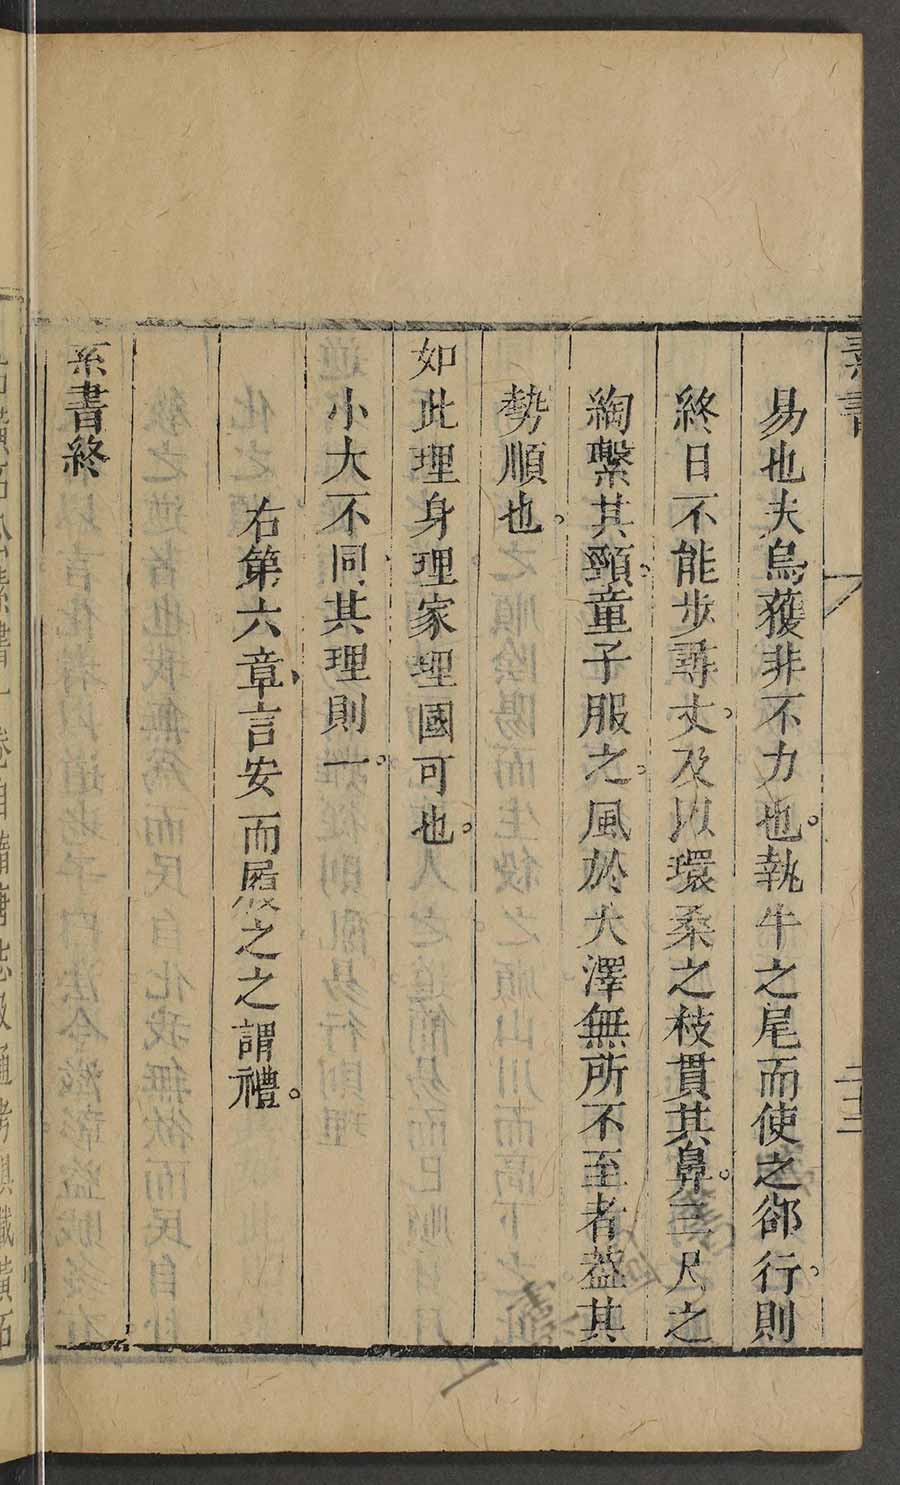 素書
二十三
易也夫烏獲非不力也。執牛之尾而使之郤行。則
終日不能步尋丈。及以環桑之枝貫其鼻。三尺之
綯繫其頸。童子服之。風於大澤無所不至者葢其
勢順也。
如此理身理家理國可也。
小大不同其理則一。
右第六章言安而履之之謂禮。
素書終